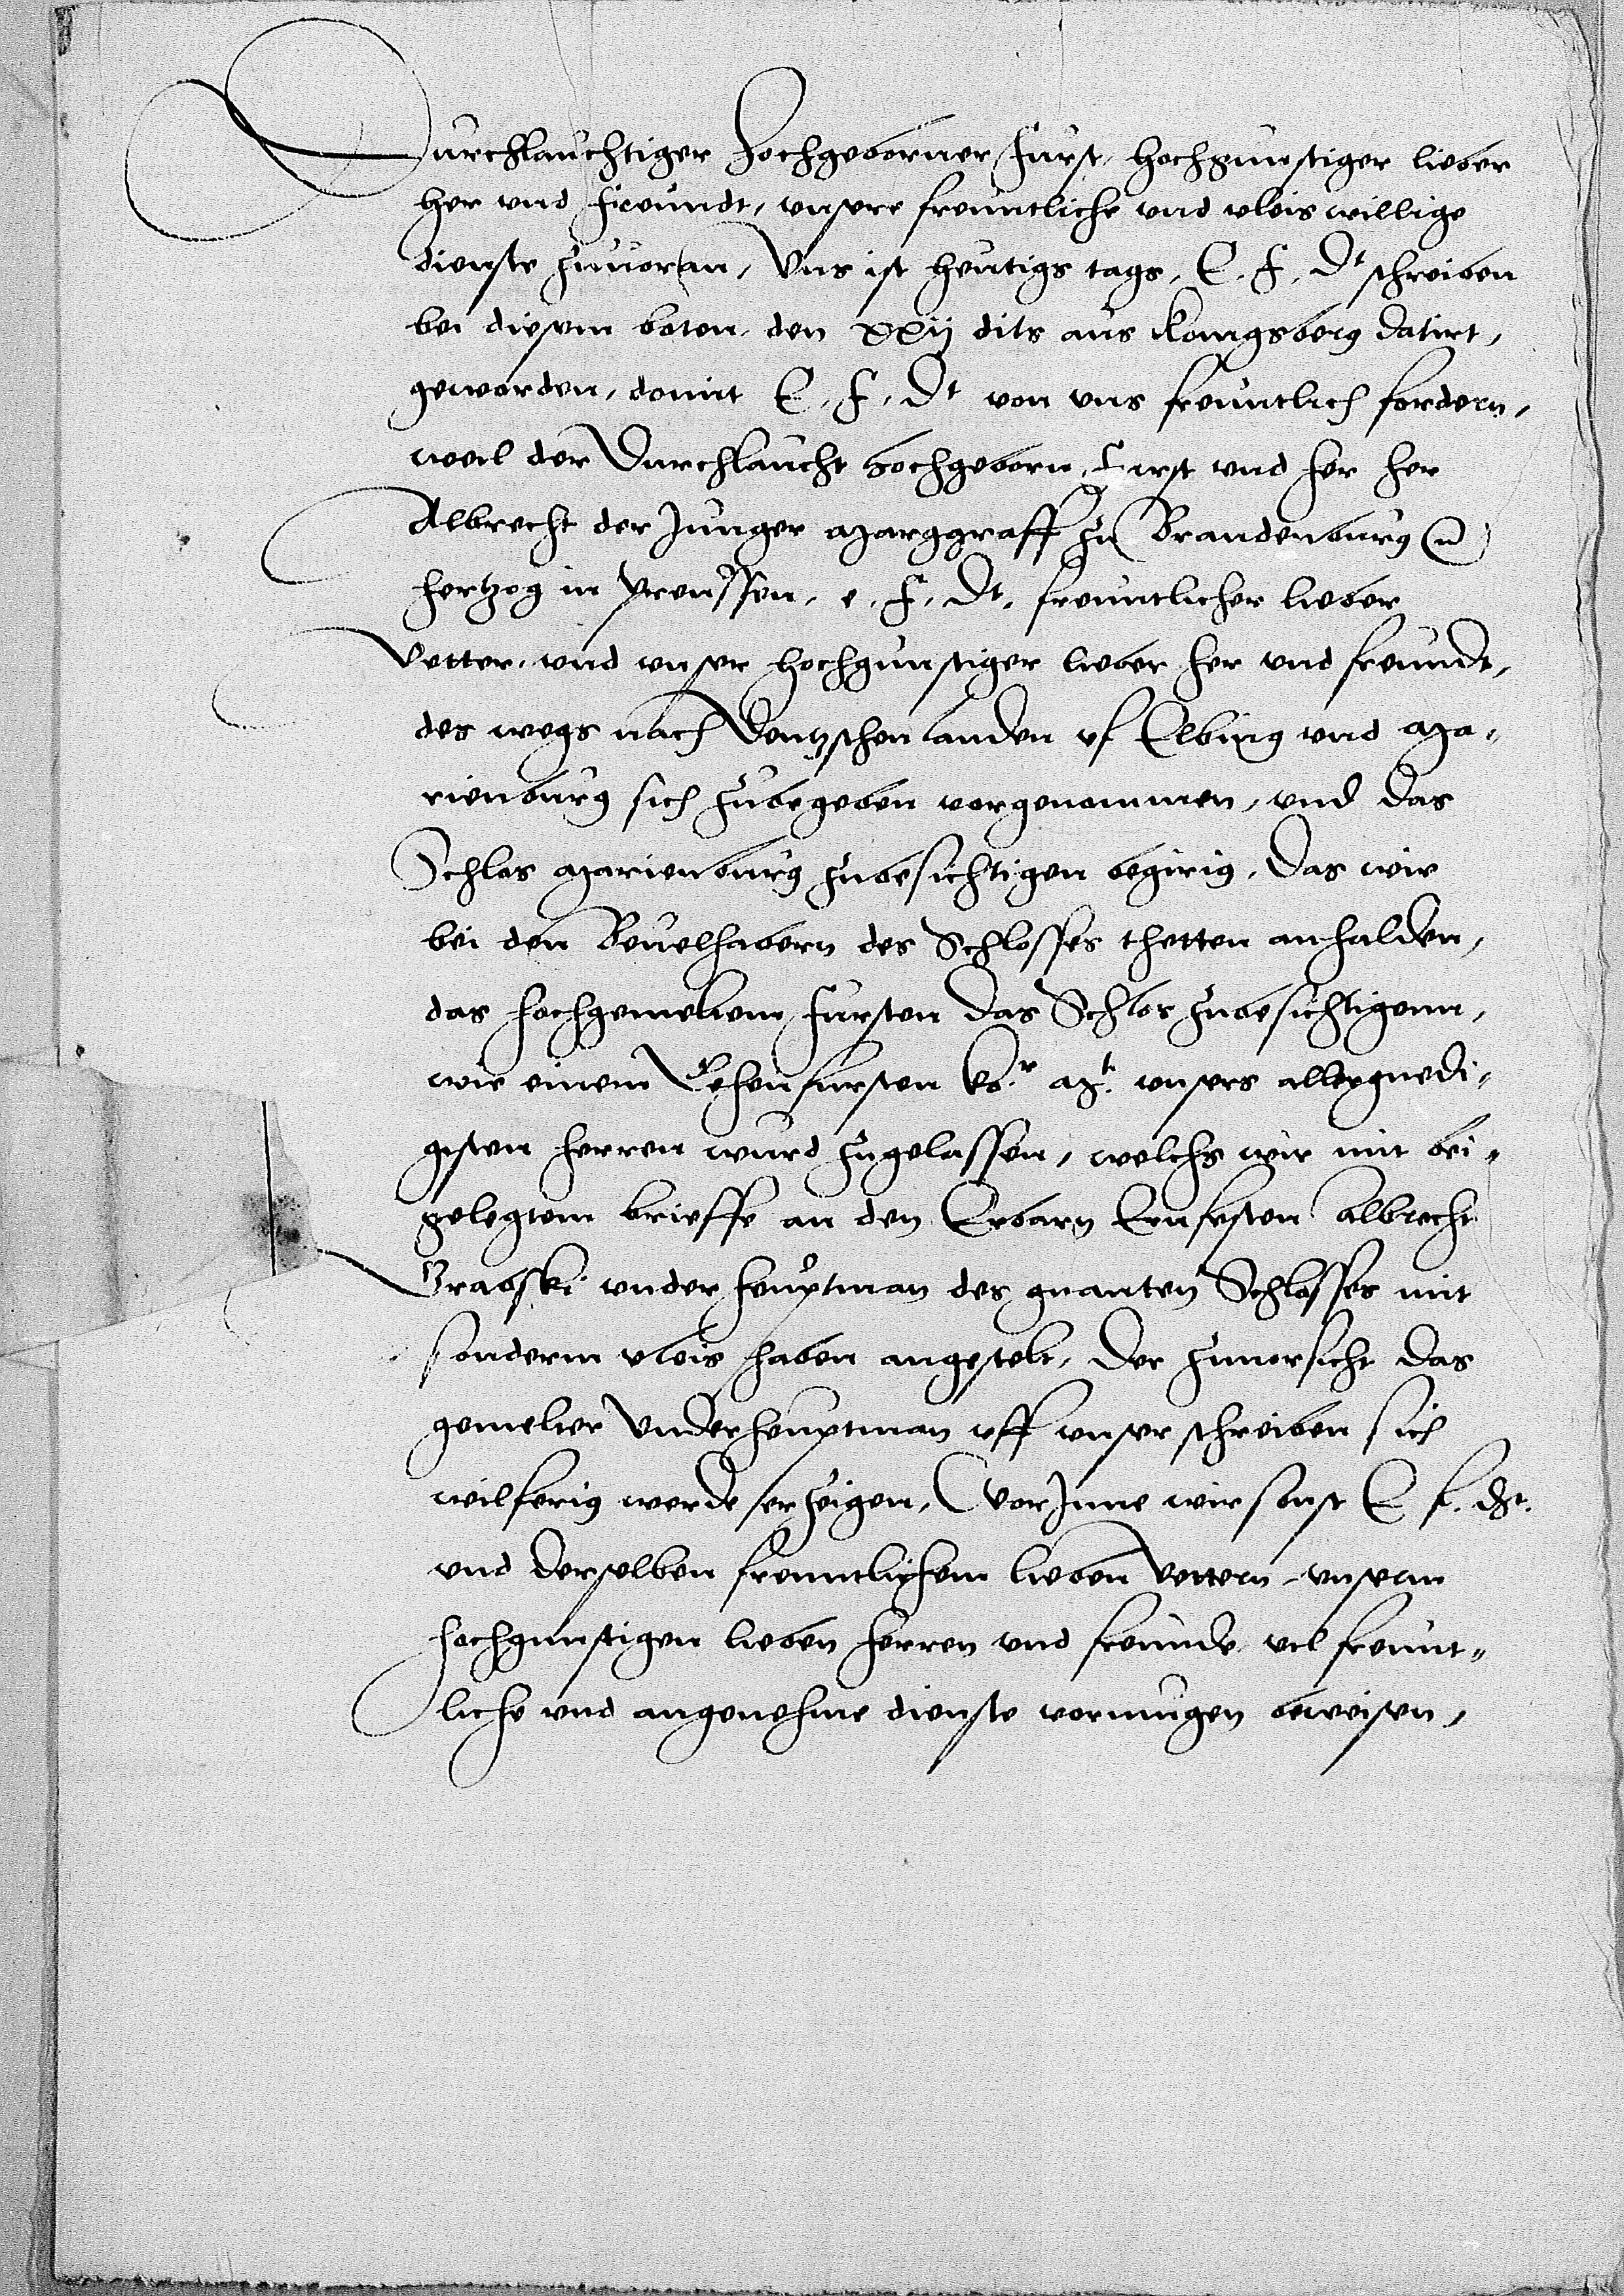 Durchlauchtiger Hochgeborner Furst, hochgunstiger lieber
her und freundt, unsere freuntliche und vleis willige
dienste zuuoran, Uns ist heutigs tags, E. F. Dt schreiben
bei diesem boten, den xxij dits aus Konigsberg datirt,
geworden, domit E. F. Dt von uns freuntlich fordern,
weil der Durchlaucht hochgeborn Furst und her her
Albrecht der Junger Marggraff zu Brandenburg und
hertzog in Preussen, e. F. Dt. freuntlicher lieber
Vetter, und unser hochgunstiger lieber her und freundt,
des wegs nach Deutzschen landen uf Elbing und Ma-
rienburg sich zubegeben vorgenommen, und das
Schlos Marienburg zubesichtigen begirig, Das wir
bei den Beuelhabern des Schlosses thetten anhalden,
das hochgemeltem Fursten das Schlos zubesichtigenn,
wie einem Lehenfursten ko.r Mt. unsers allergnedi-
gsten herren wurd zugelassen, welchs wir mit bei-
gelegtem brieffe an den Erbarn Ernfesten Albrecht
Grabski under heuptman des gnanten Schlosses mit
sonderm vleis haben angestelt, Der zuuorsicht das
gemelter Underheuptman uff unser schreiben sich
wilferig werde erzeigen, Worinne wir sonst E. f. dt.
und derselben freuntlichem lieben Vettern, unserm
hochgunstigen lieben herren und freunde, vil freunt-
liche und angenehme dienste vormugen beweisen,